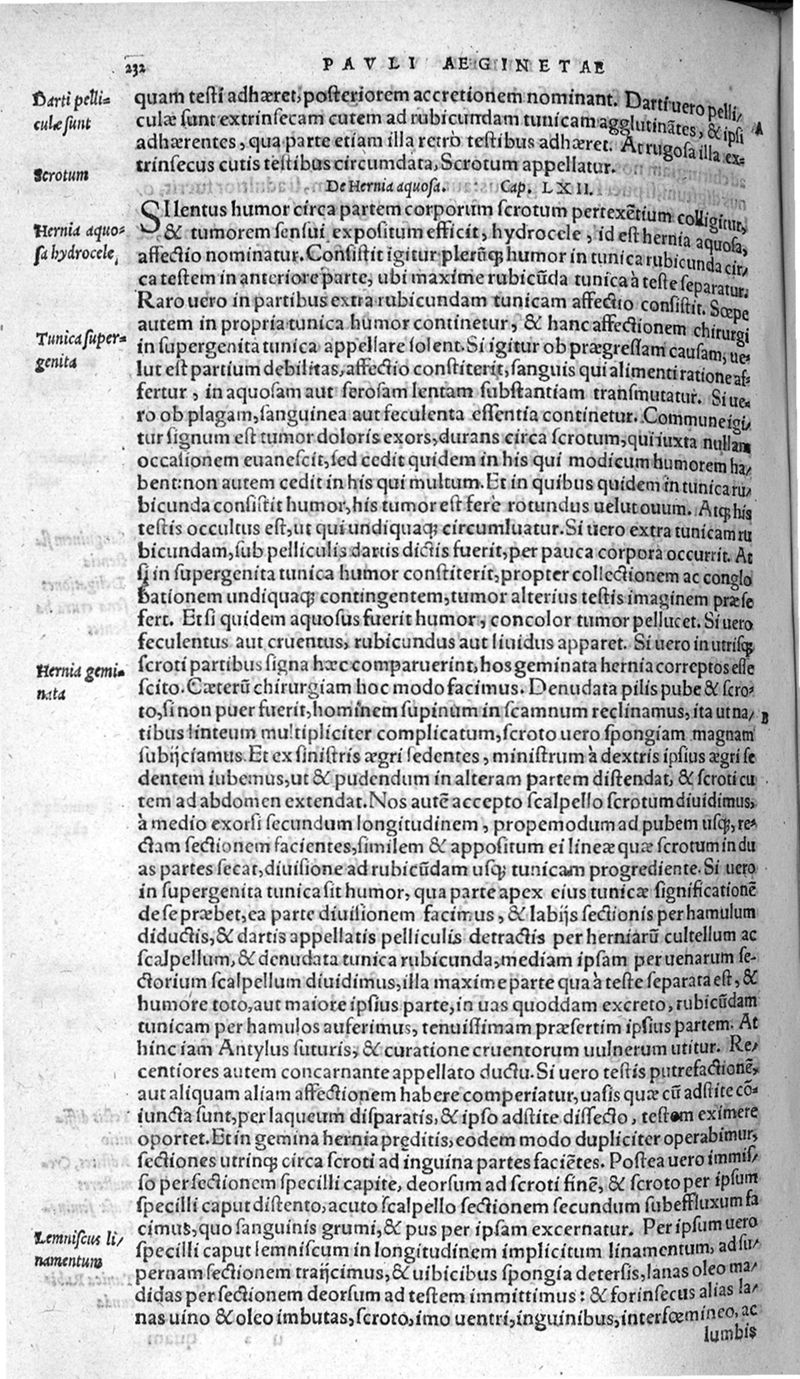 232 PAVLI AEGINETAE
Darti pelli-
culæ sunt
Scrotum
Hernia aquo-
sa hydrocele,
Tunica super-
genita
Hernia gemi-
nata
Lemniscus li/
namentum
quam testi adhæret, posteriorem accretionem nominant. Darti uero pelli/
culæ sunt extrinsecam cutem ad rubicundam tunicam agglutinātes, & ipsi
A
adhærentes, qua parte etiam illa retro testibus adhæret. At rugosa illa ex-
trinsecus cutis testibus circumdata, Scrotum appellatur.
De Hernia aquosa. Cap. LXII.
SIlentus humor circa partem corporum scrotum pertexētium colligitur,
& tumorem sensui expositum efficit, hydrocele, id est hernia aquosa,
affectio nominatur. Consistit igitur plerūq; humor in tunica rubicunda cir/
ca testem in anteriore parte, ubi maxime rubicūda tunica à teste separatur.
Raro uero in partibus extra rubicundam tunicam affectio consistit. Sœpe
autem in propria tunica humor continetur, & hanc affectionem chirurgi
in supergenita tunica appellare solent. Si igitur ob prægressam causam, ue-
lut est partium debilitas, affectio constiterit, sanguis qui alimenti ratione af-
fertur, in aquosam aut serosam lentam substantiam transmutatur. Si ue-
ro ob plagam, sanguinea aut feculenta essentia continetur. Commune igi/
tur signum est tumor doloris exors, durans circa scrotum, qui iuxta nullam
occasionem euanescit, sed cedit quidem in his qui modicum humorem ha/
bent: non autem cedit in his qui multum. Et in quibus quidem in tunica ru/
bicunda consistit humor, his tumor est fere rotundus uelut ouum. Atq; his
testis occultus est, ut qui undiquaq; circumluatur. Si uero extra tunicam ru
bicundam, sub pelliculis dartis dictis fuerit, per pauca corpora occurrit. At
si in supergenita tunica humor constiterit, propter collectionem ac conglo
bationem undiquaq; contingentem, tumor alterius testis imaginem præ se
fert. Et si quidem aquosus fuerit humor, concolor tumor pellucet. Si uero
feculentus aut cruentus, rubicundus aut liuidus apparet. Si uero in utrisq;
scroti partibus signa hæc comparuerint, hos geminata hernia correptos esse
scito. Cæterū chirurgiam hoc modo facimus. Denudata pilis pube & scro-
to, si non puer fuerit, hominem supinum in scamnum reclinamus, ita ut na/
B
tibus linteum multipliciter complicatum, scroto uero spongiam magnam
subijciamus. Et ex sinistris ægri sedentes, ministrum à dextris ipsius ægri se
dentem iubemus, ut & pudendum in alteram partem distendat, & scroti cu
tem ad abdomen extendat. Nos autē accepto scalpello scrotum diuidimus,
à medio exorsi secundum longitudinem, propemodum ad pubem usq;, re-
ctam sectionem facientes, similem & appositum ei lineæ quæ scrotum in du
as partes secat, diuisione ad rubicūdam usq; tunicam progrediente. Si uero
in supergenita tunica sit humor, qua parte apex eius tunicæ significationē
de se præbet, ea parte diuisionem facimus, & labijs sectionis per hamulum
diductis, & dartis appellatis pelliculis detractis per herniarū cultellum ac
scalpellum, & denudata tunica rubicunda, mediam ipsam per uenarum se-
ctorium scalpellum diuidimus, illa maxime parte qua à teste separata est, &
humore toto, aut maiore ipsius parte, in uas quoddam excreto, rubicūdam
tunicam per hamulos auferimus, tenuissimam præsertim ipsius partem. At
hinc iam Antylus suturis, & curatione cruentorum uulnerum utitur. Re/
centiores autem concarnante appellato ductu. Si uero testis putrefactionē,
aut aliquam aliam affectionem habere comperiatur, uasis quæ cū adstite cō-
iuncta sunt, per laqueum disparatis, & ipso adstite dissecto, testem eximere
oportet. Et in gemina hernia preditis, eodem modo dupliciter operabimur,
sectiones utrinq; circa scroti ad inguina partes faciētes. Postea uero immis/
so per sectionem specilli capite, deorsum ad scroti finē, & scroto per ipsum
specilli caput distento, acuto scalpello sectionem secundum subeffluxum fa
cimus, quo sanguinis grumi, & pus per ipsam excernatur. Per ipsum uero
specilli caput lemniscum in longitudinem implicitum linamentum, ad su/
pernam sectionem traijcimus, & uibicibus spongia detersis, lanas oleo ma/
didas per sectionem deorsum ad testem immittimus: & forinsecus alias la/
nas uino & oleo imbutas, scroto, imo uentri, inguinibus, interfœmineo, ac
lumbis